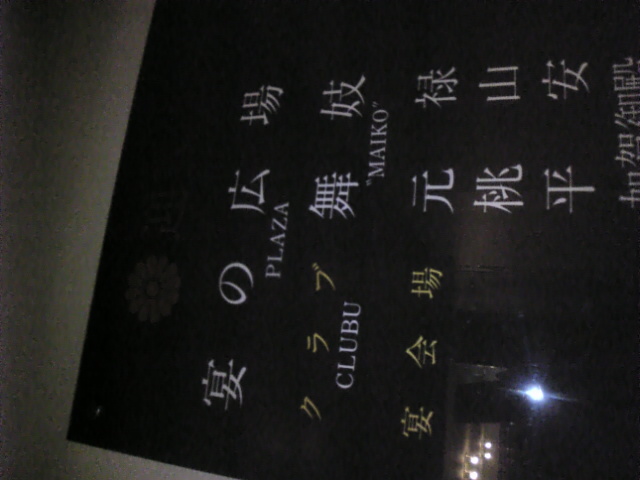 宴の広場
PLAZA
クラブ 舞妓
CLUBU "MAIKO"
宴会場 元禄
桃山
平安
加賀御殿